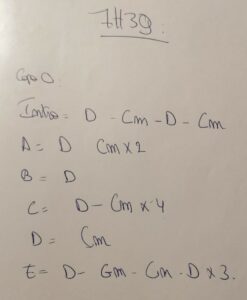 7H39.
Capo 0.
Intro = D - Cm - D - Cm
A = D Cm x 2
B = D
C = D - Cm x 4
D = Cm
E = D - Gm - Cm - D x 3.